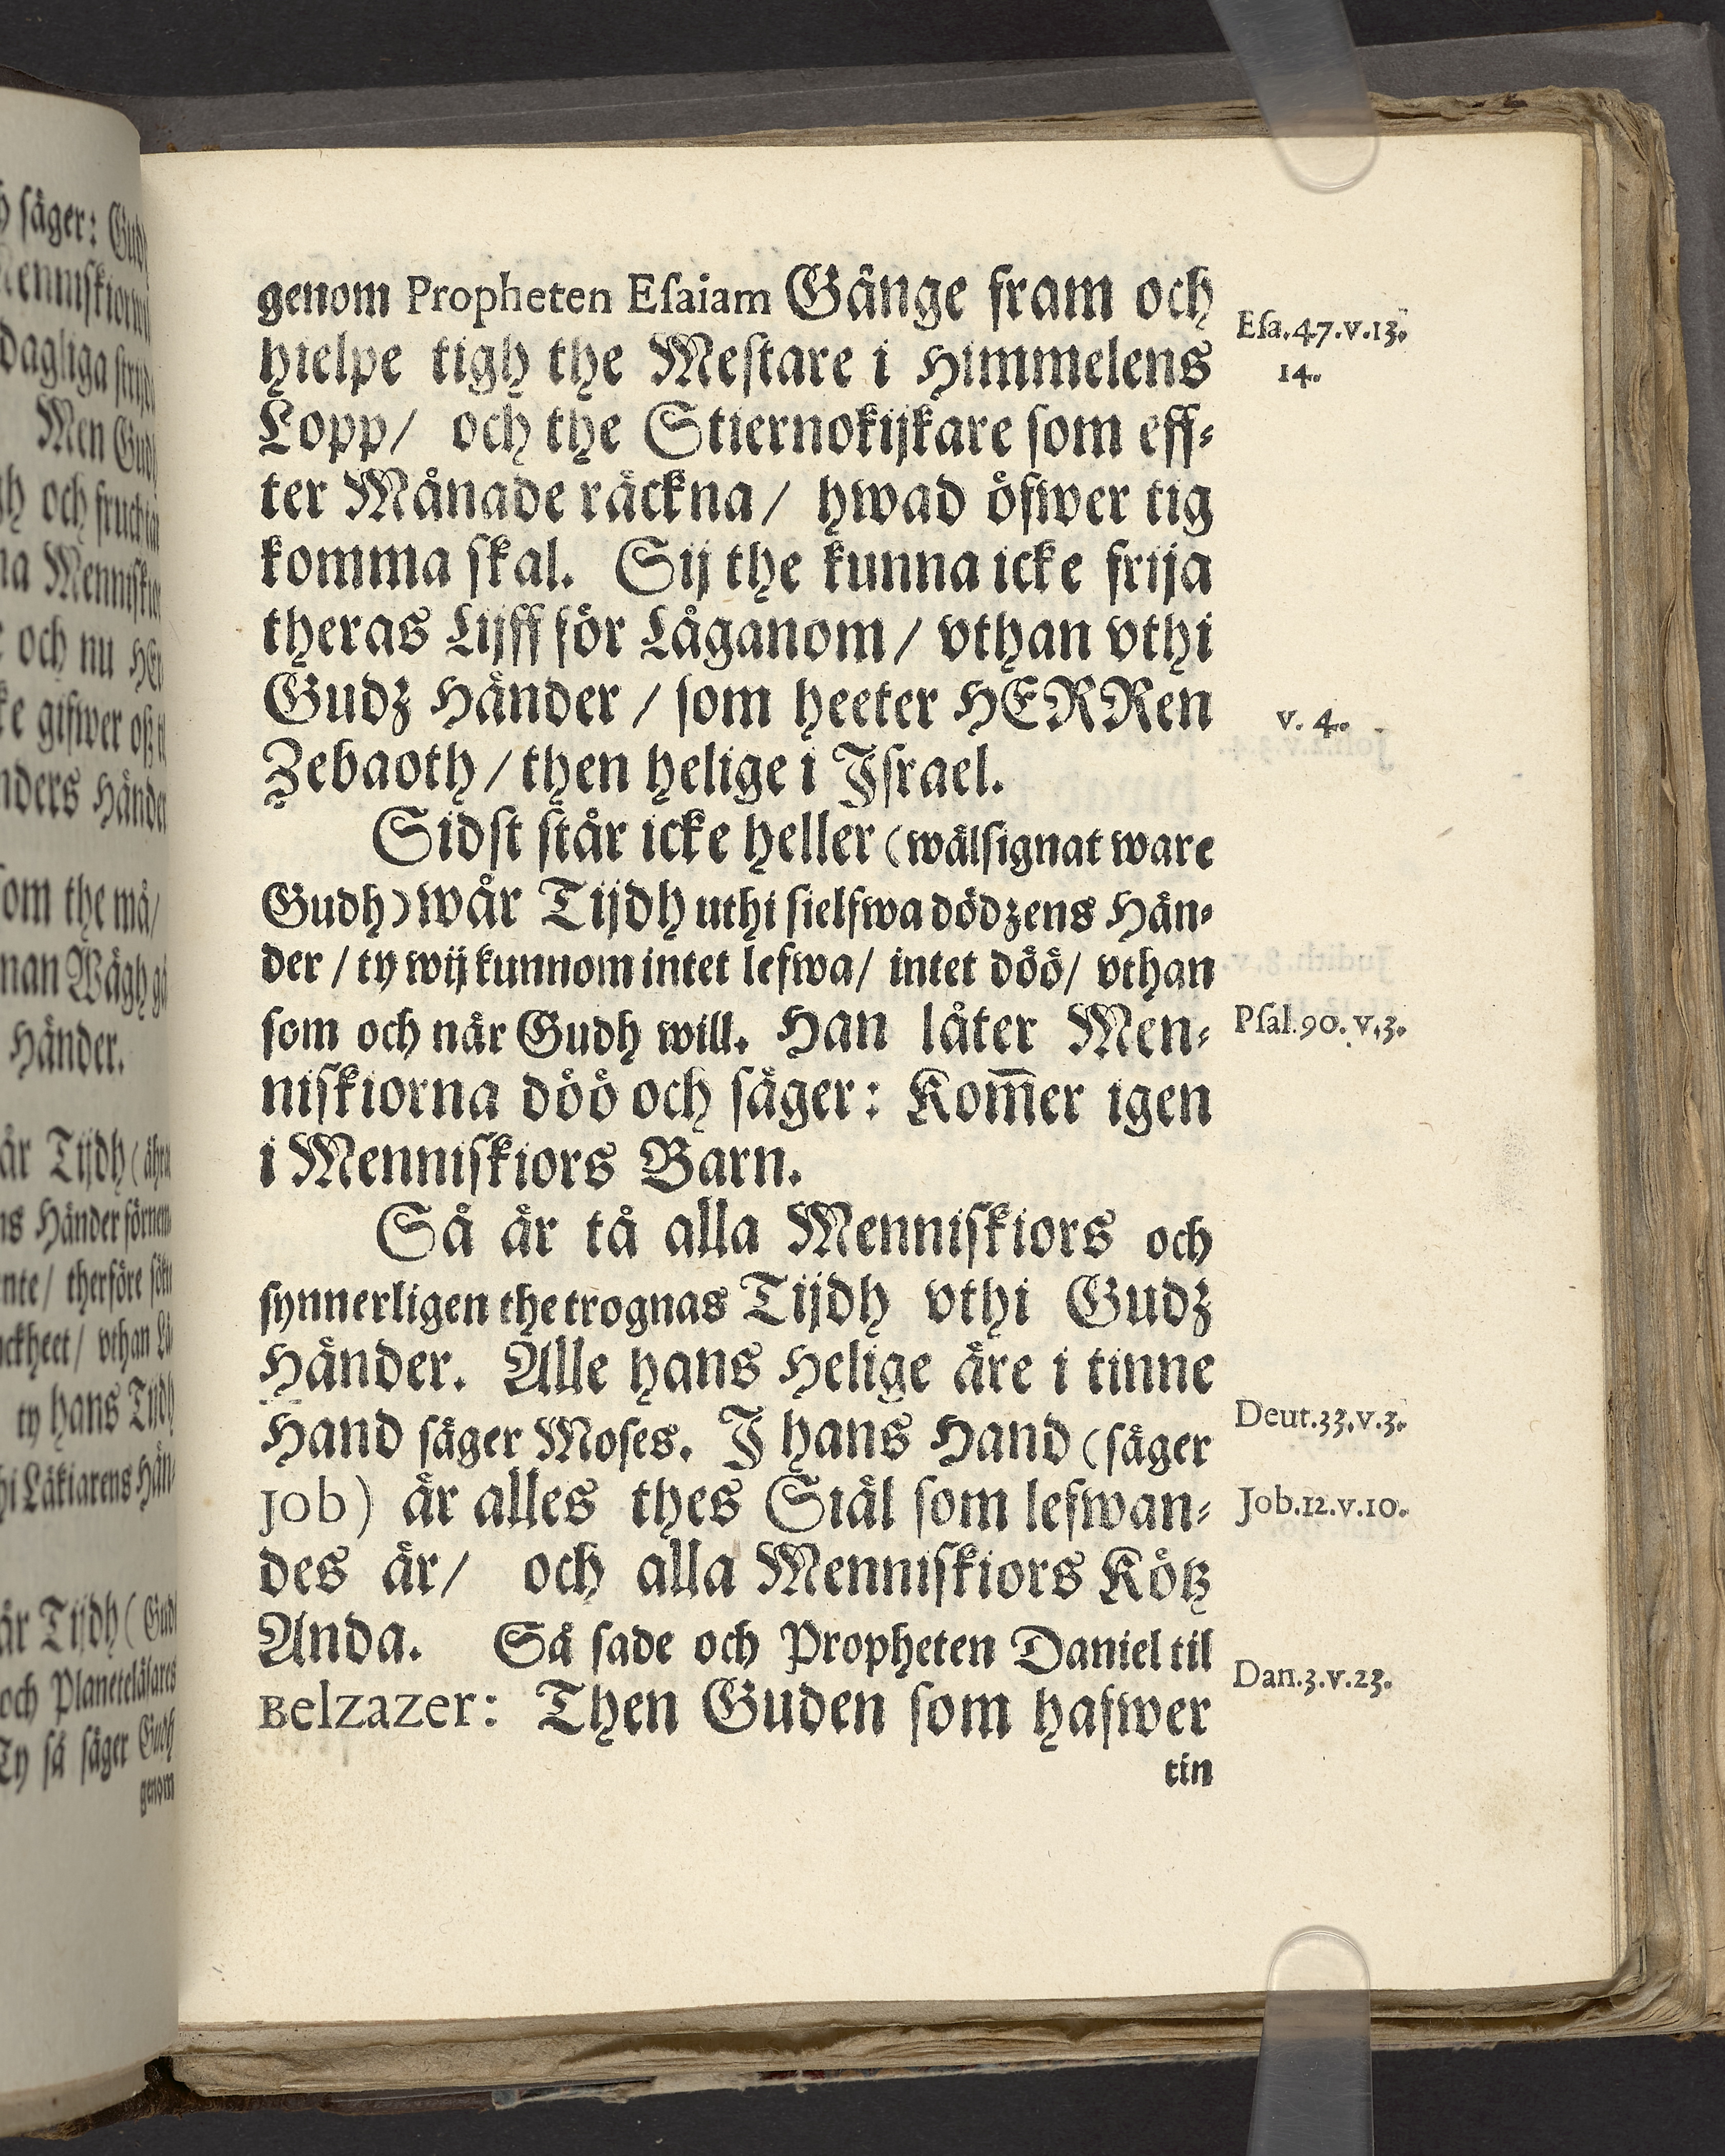 genom Propheten Eſaiam Gånge fram och
hielpe tigh the Meſtare i Himmelens
Lopp/ och the Stiernokijkare ſom eff⸗
ter Månade räckna/ hwad öfwer tig
komma ſkal. Sij the kunna icke frija
theras Lijff för Låganom/ vthan vthi
Gudz Händer/ ſom heeter HERRen
Zebaoth/ then helige i Iſrael.
Sidſt står icke heller (wälſignat ware
Gudh) wår Tijdh uthi ſielfwa dödzens Hän⸗
der/ ty wij kunnom intet lefwa/ intet döö/ vthan
ſom och når Gudh will. Han låter Men⸗
niſkiorna döö och ſåger: Kom̅er igen
i Menniſkiors Barn.
Så år tå alla Menniſkiors och
ſynnerligen the trognas Tijdh vthi Gudz
Händer. Alle hans Helige åre i tinne
Hand ſåger Moſes. I hans Hand (ſåger
Job) år alles thes Siål ſom lefwan⸗
des år/ och alla Menniſkiors Kötz
Anda. Så ſade och Propheten Daniel til
Belzazer: Then Guden ſom hafwer
tin
Eſa.47.v.13.
14.
v. 4.
Pſal.90.v.3.
Deut.33.v.3.
Job.12.v.10.
Dan.3.v.23.